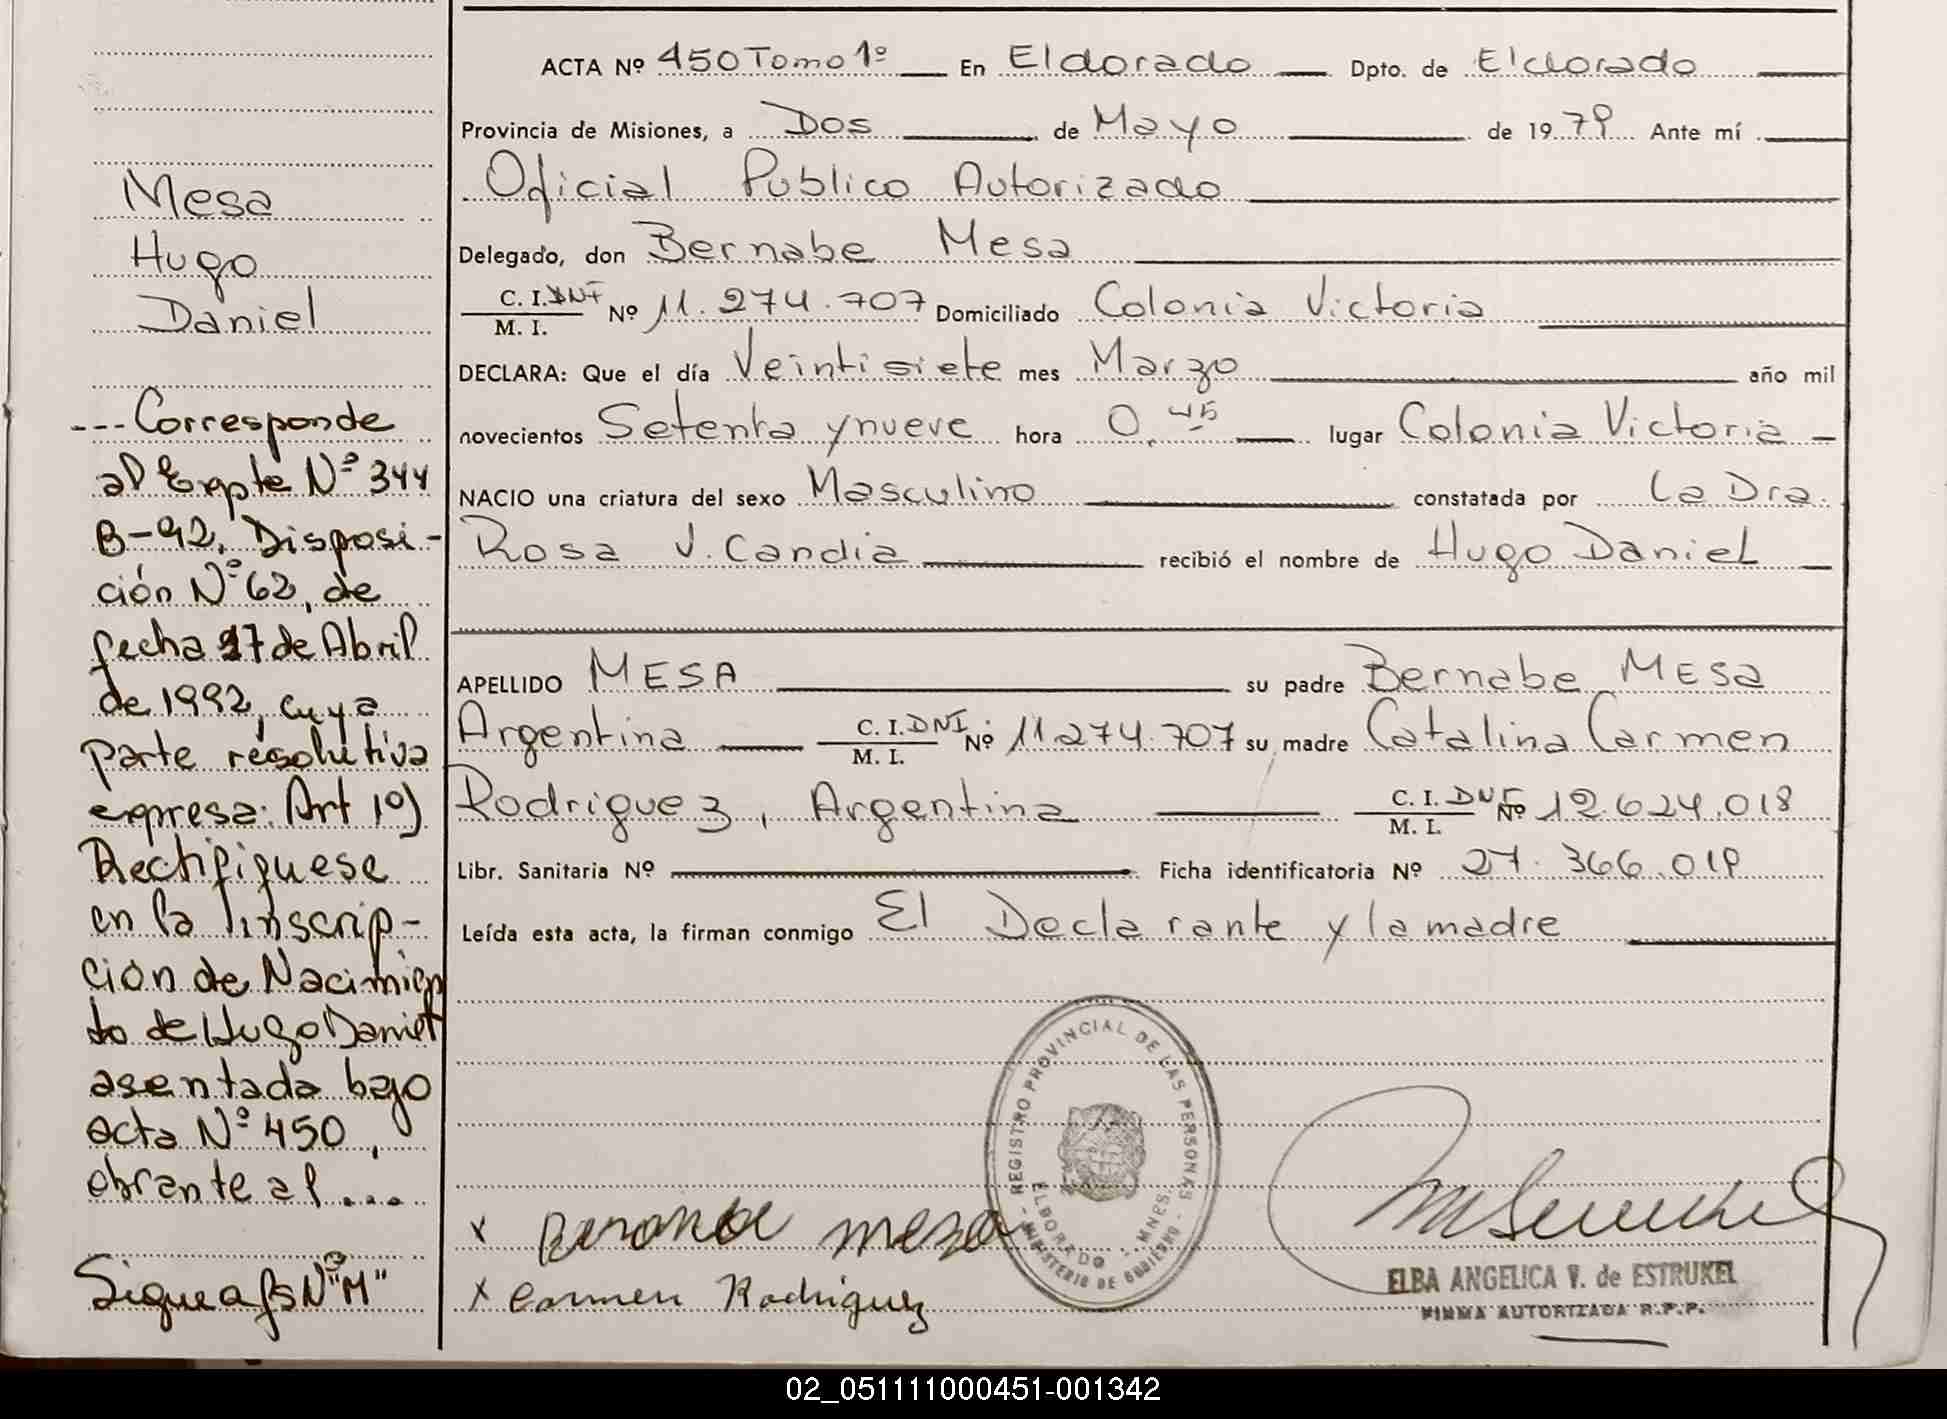 ACTA Nº 450 Tomo 1º En Eldorado Dpto. de Eldorado
Provincia de Misiones, a Dos de Mayo de 1979 Ante mí
Oficial Publico Autorizado
Delegado, don Bernabe Mesa
C. I. DNI
M. I.
Nº 11.274.707 Domiciliado Colonia Victoria
DECLARA: Que el día Veintisiete mes Marzo año mil
novecientos Setenta y nueve hora 0,45 lugar Colonia Victoria
NACIO una criatura del sexo Masculino constatada por La Dra.
Rosa V. Candia recibió el nombre de Hugo Daniel
APELLIDO MESA su padre Bernabe Mesa
Argentina C. I. DNI M. I. Nº 11.274.707 su madre Catalina Carmen
Rodriguez, Argentina C. I. DNI M. I. Nº 12.624.018
Libr. Sanitaria Nº Ficha identificatoria Nº 27.366.019
Leída esta acta, la firman conmigo El Declarante y la madre
Mesa
Hugo
Daniel
---Corresponde
al Expte Nº 344
B-92, Disposi-
ción Nº 62, de
fecha 27 de Abril
de 1992, cuya
parte resolutiva
expresa: Art 1º)
Rectifiquese
en la Inscrip-
ción de Nacimien
to de Hugo Daniel
asentada bajo
acta Nº 450,
obrante al ....
Sigue a fs Nº "M"
REGISTRO PROVINCIAL DE LAS PERSONAS
ELDORADO - MNES.
MINISTERIO DE GOBIERNO
x Bernabe mesa
x Carmen Rodriguez
ELBA ANGELICA V. de ESTRUKEL
FIRMA AUTORIZADA R.P.P.
02_051111000451-001342